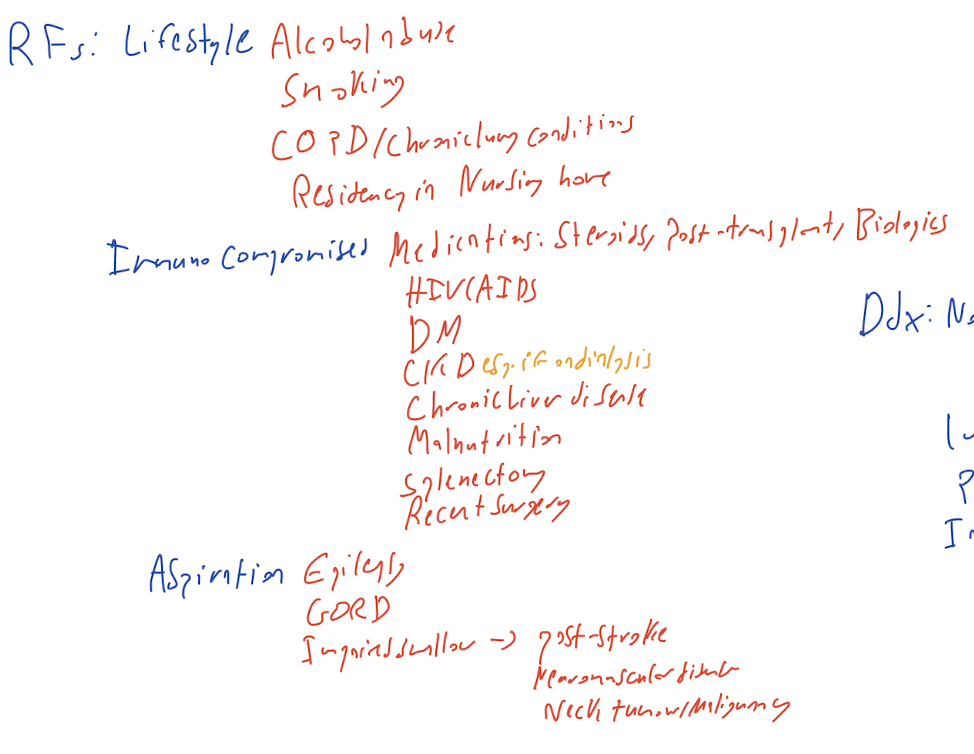 RFs: Lifestyle Alcohol abuse
Smoking
COPD/Chronic lung conditions
Residency in Nursing home
Immuno compromised Medications: Steroids, Post-transplant, Biologics
HIV(AIDS
DM
CKD esp. if on dialysis
Chronic Liver disease
Malnutrition
Splenectomy
Recent surgery
Ddx:
Aspiration Epilepsy
GORD
Impaired swallow -> post-stroke
Neuromuscular disease
Neck tumour/Malignancy